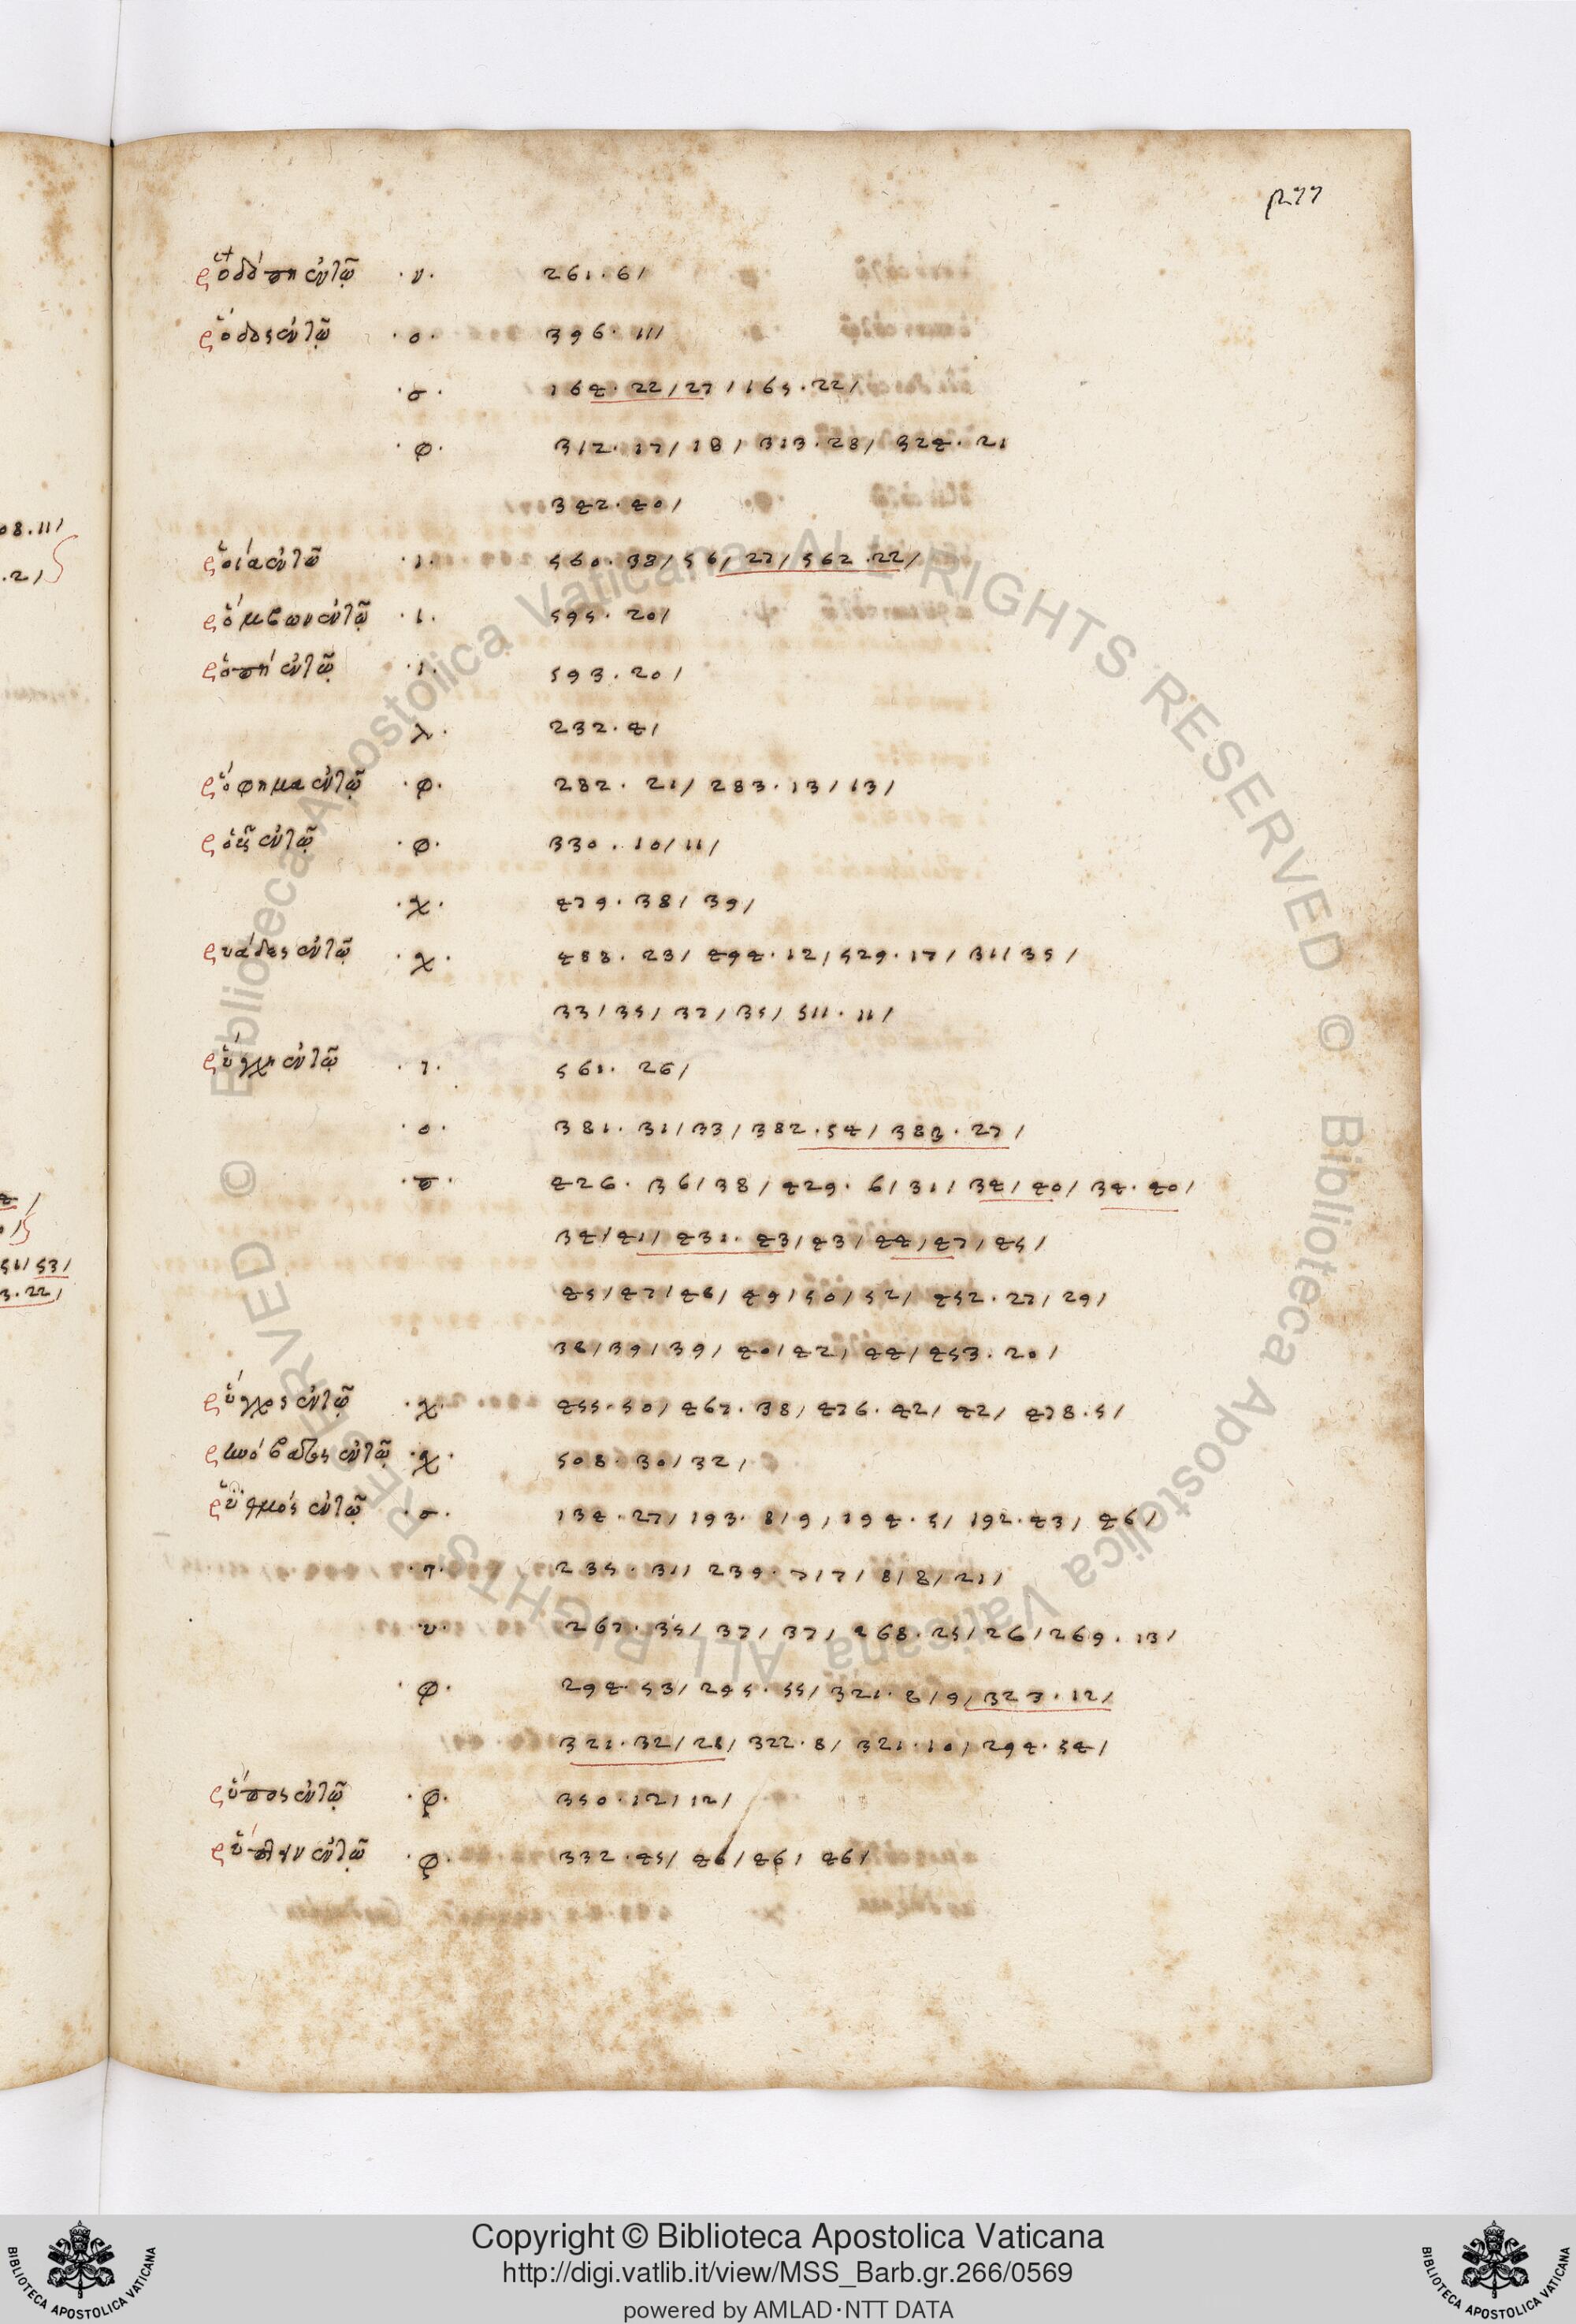 ῥοδόπη ἐν τῷ ·ν· 261·6/
ῥόδος ἐν τῷ ·ο· 396·11/
·σ· 164·22/27/165·22/
·φ· 312·17/18/313·28/324·21
342·40/
ῥοιὰ ἐν τῷ 560·38/56/27/562·22/
ῥόμβων ἐν τῷ ·ι· 595·20/
ῥοπή ἐν τῷ ·ι· 593·20/
λ· 232·4/
ῥόφημα ἐν τῷ ·φ· 282·21/283·13/13/
ἐν τῷ ·φ· 330·10/11/
·χ· 479·38/39/
ῥυάδες ἐν τῷ ·χ· 488·23/494·12/529·17/31/35/
33/35/37/35/511·11/
ῥύγχη ἐν τῷ 561·26/
·ο· 381·31/33/382·54/383·27/
·π· 426·36/38/429·6/31/34/40/34·40/
34/41/431·43/43/44/47/45/
45/47/46/49/50/52/452·27/29/
38/39/39/40/42/44/453·20/
ῥύγχος ἐν τῷ ·χ· 455·50/467·38/476·42/42/478·5/
ἐν τῷ ·χ· 508·30/32/
ῥυθμός ἐν τῷ ·σ· 134·27/193·8/9/194·5/192·43/46/
·τ· 235·31/239·7/7/8/8/21/
υ· 267·35/37/37/268·25/26/269·13/
·φ· 294·53/295·55/321·8/9/323·12/
321·32/28/322·8/321·10/294·54/
ῥύπος ἐν τῷ ·φ· 350·12/12/
ἐν τῷ ·φ· 332·45/46/46/46/
08·11/
·2/
51/53/
3·22/
© Biblioteca Apostolica Vaticana ALL RIGHTS RESERVED © Biblioteca Apostolica Vaticana ALL RIGHTS RESERVED
Copyright © Biblioteca Apostolica Vaticana
http://digi.vatlib.it/view/MSS_Barb.gr.266/0569
powered by AMLAD·NTT DATA
BIBLIOTECA APOSTOLICA VATICANA
BIBLIOTECA APOSTOLICA VATICANA